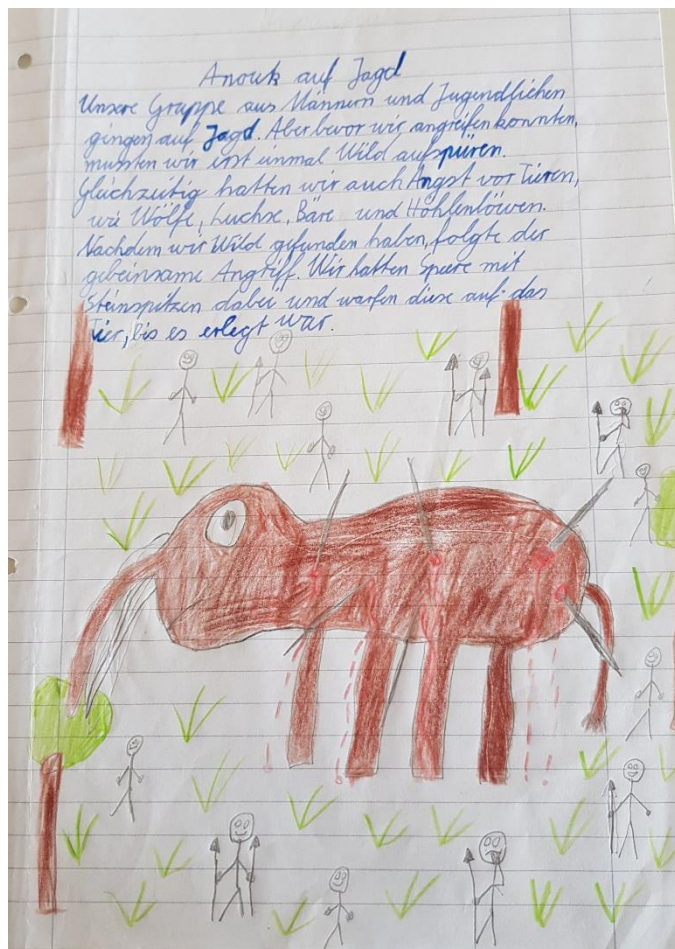 Anouk auf Jagd
Unsere Gruppe aus Männern und Jugendlichen
gingen auf Jagd. Aber bevor wir angreifen konnten,
mussten wir erst einmal Wild aufspüren.
Gleichzeitig hatten wir auch Angst vor Tieren,
wie Wölfe, Luchse, Bäre und Höhlenlöwen.
Nachdem wir Wild gefunden haben, folgte der
gebeinsame Angriff. Wir hatten Spere mit
Steinspitzen dabei und warfen diese auf das
Tier, bis es erlegt war.